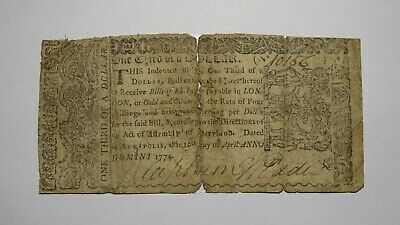 One Third of a DOLLAR. No 10156
THIS Indented Bill of One Third of a
DOLLAR, shall entitle the Bearer hereof
to Receive Bills of Exchange payable in LON-
DON, or Gold and Silver, at the Rate of Four
Shillings and Six-pence sterling per Dollar
for the said Bill, according to the Directions of an
Act of Assembly of Maryland. Dated
in ANNAPOLIS, this 10th Day of April ANNO
DOMINI 1774.
ONE THIRD OF A DOLLAR.